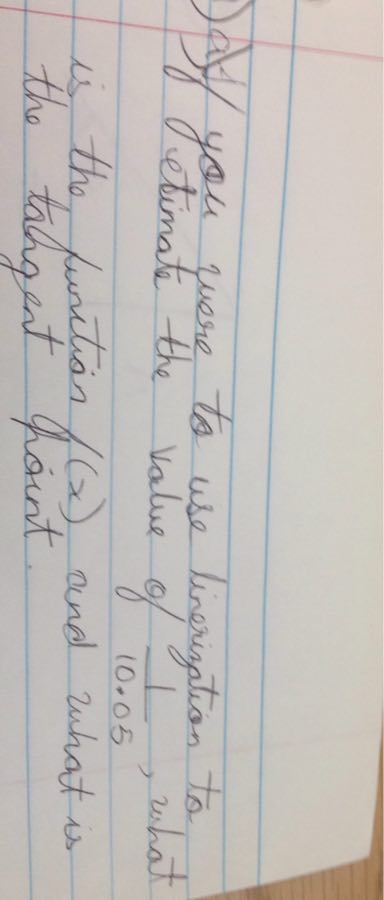 ) a) If you were to use linerization to
etimate the value of 1/10.05, what
is the function f(x) and what is
the tangent point.